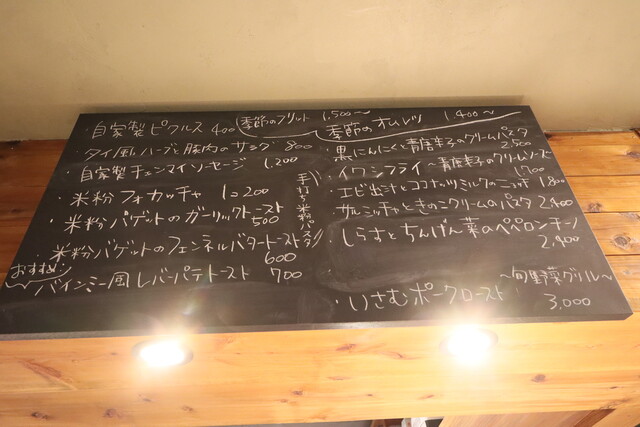 ・自家製ピクルス 400
・タイ風ハーブと豚肉のサラダ 800
・自家製チェンマイソーセージ 1,200
・米粉フォカッチャ 1コ200
・米粉バゲットのガーリックトースト
500
・米粉バゲットのフェンネルバタートースト
600
おすすめ
・バインミー風レバーパテトースト 700
季節のフリット 1,500〜
季節のオムレツ 1,400〜
手打ち米粉パスタ
・黒にんにくと青唐辛子のクリームパスタ
2,500
・イワシフライ〜青唐辛子のクリームソース
1,700
・エビ出汁とココナッツミルクのニョッキ 1,800
・サルシッチャときのこクリームのパスタ 2,400
・しらすとちんげん菜のペペロンチーノ
2,400
〜旬野菜グリル〜
・いさむポークロースト 3,000